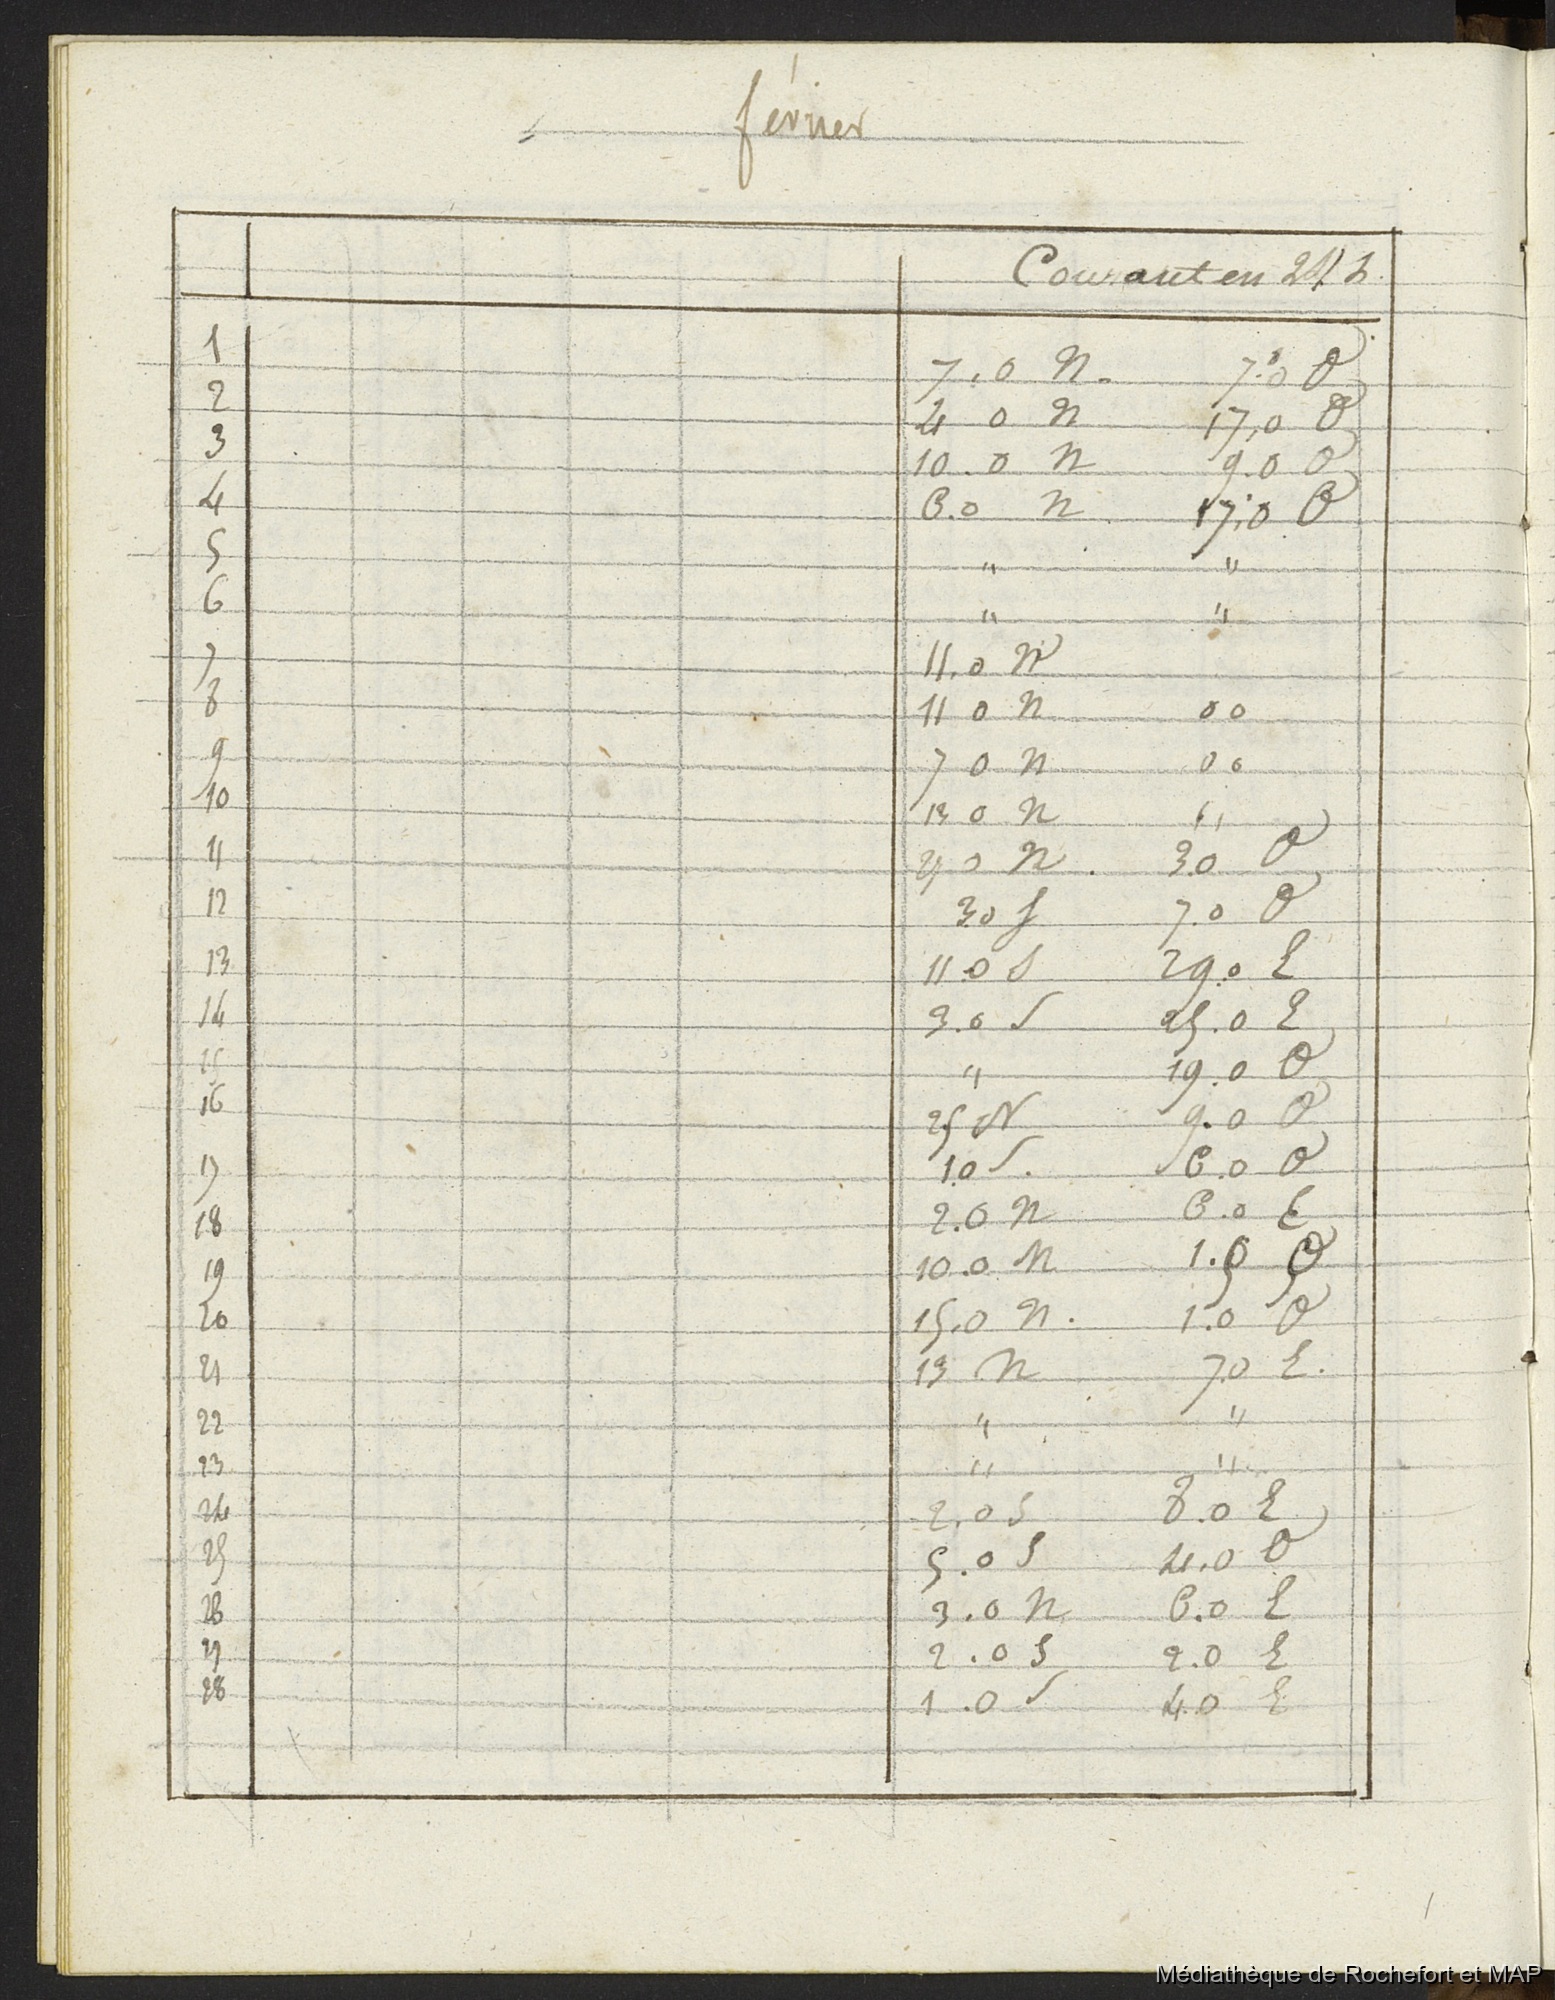 février
Courant en 24 h.
1 7.0 N. 7.0 O
2 4 0 N 17,0 O
3 10.0 N 9.0 O
4 6.0 N 17,0 O
5 " "
6 " "
7 11.0 N
8 11 0 N 0 0
9 7 0 N 0 0
10 13 0 N "
11 0 N. 3.0 O
12 3.0 S 7.0 O
13 11.0 S 29.0 E
14 3.0 S 25.0 E
15 " 19.0 O
16 25 N 9.0 O
17 1.0 S. 6.0 O
18 2.0 N 6.0 E
19 10.0 N 1. O
20 15.0 N. 1.0 O
21 13 N 7.0 E.
22 " "
23 " "
24 2.0 S 8.0 E
25 5.0 S 4.0 O
26 3.0 N 6.0 E
27 2.0 S 2.0 E
28 1.0 S 4.0 E
Médiathèque de Rochefort et MAP